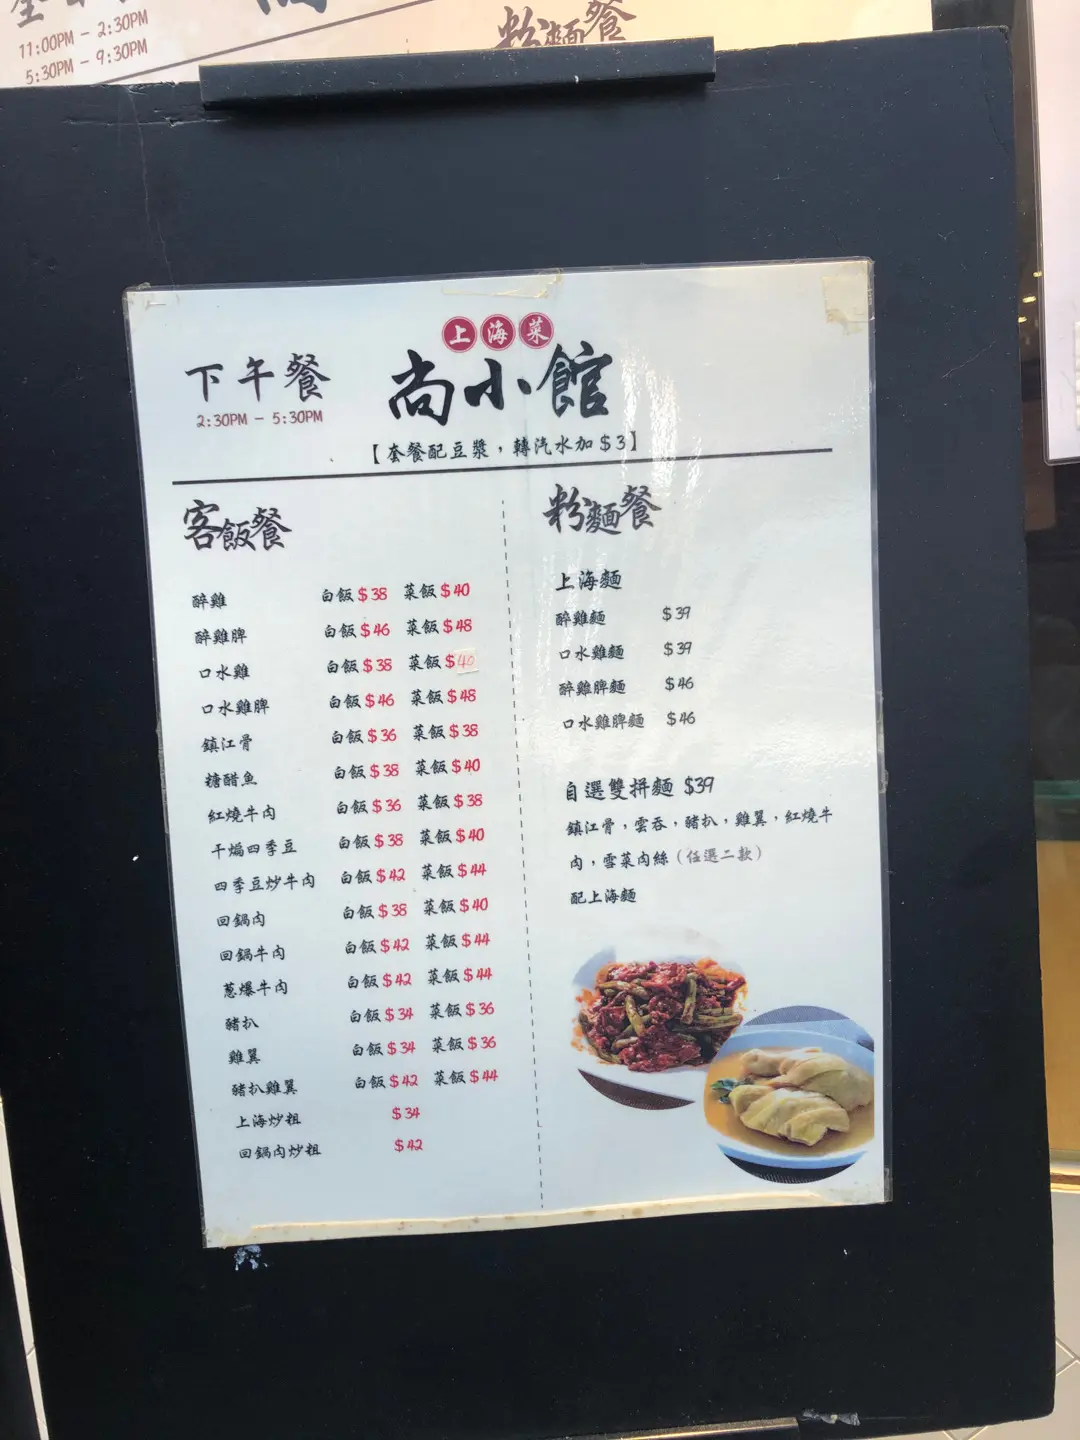 11:00PM - 2:30PM
5:30PM - 9:30PM
粉麵餐
上海菜
下午餐
尚小館
2:30PM - 5:30PM
【套餐配豆漿,轉汽水加$3】
客飯餐
醉雞 白飯$38 菜飯$40
醉雞脾 白飯$46 菜飯$48
口水雞 白飯$38 菜飯$40
口水雞脾 白飯$46 菜飯$48
鎮江骨 白飯$36 菜飯$38
糖醋魚 白飯$38 菜飯$40
紅燒牛肉 白飯$36 菜飯$38
干煸四季豆 白飯$38 菜飯$40
四季豆炒牛肉 白飯$42 菜飯$44
回鍋肉 白飯$38 菜飯$40
回鍋牛肉 白飯$42 菜飯$44
蔥爆牛肉 白飯$42 菜飯$44
豬扒 白飯$34 菜飯$36
雞翼 白飯$34 菜飯$36
豬扒雞翼 白飯$42 菜飯$44
上海炒粗 $34
回鍋肉炒粗 $42
粉麵餐
上海麵
醉雞麵 $39
口水雞麵 $39
醉雞脾麵 $46
口水雞脾麵 $46
自選雙拼麵 $39
鎮江骨,雲吞,豬扒,雞翼,紅燒牛
肉,雪菜肉絲(任選二款)
配上海麵